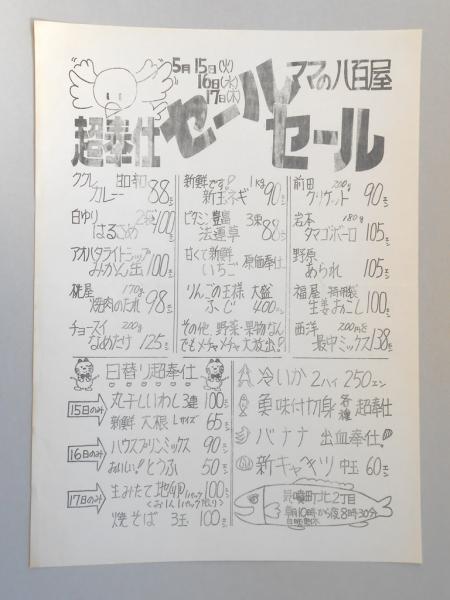 5月15日(火)
16日(水)
17日(木)
ママの八百屋
超奉仕セールセール
ククレ 昭和
カレー 88エン
白ゆり 2袋
はるさめ 100エン
アオハタライトシラップ
みかん缶 100エン
桃屋 170g
焼肉のたれ 98エン
チョースイ 200g
なめたけ 125エン
新鮮です! 1kg
新玉ネギ 90エン
ビタミン豊富 3束
法連草 88エン
甘くて新鮮
いちご 原価奉仕
りんごの王様 大盛
ふじ 400エン
その他、野菜・果物なん
でもメチャメチャ大放出!
前田 200g
クリケット 90エン
岩本 180g
タマゴボーロ 105エン
野原
あられ 105エン
福屋 特用袋
生姜おこし 100エン
西洋 200円を
最中ミックス 138エン
日替り超奉仕
15日のみ
丸干しいわし 3連 100エン
新鮮 大根 Lサイズ 65エン
16日のみ
ハウスプリンミックス 90エン
おいしい!とうふ 50エン
17日のみ
生みたて地卵 1パック 100エン
(お1人1パック限り)
焼そば 3玉 100エン
冷いか 2ハイ 250エン
魚味付切身 各種 超奉仕
バナナ 出血奉仕!
新キャベツ 中玉 60エン
町北2丁目
朝10時から夜8時30分